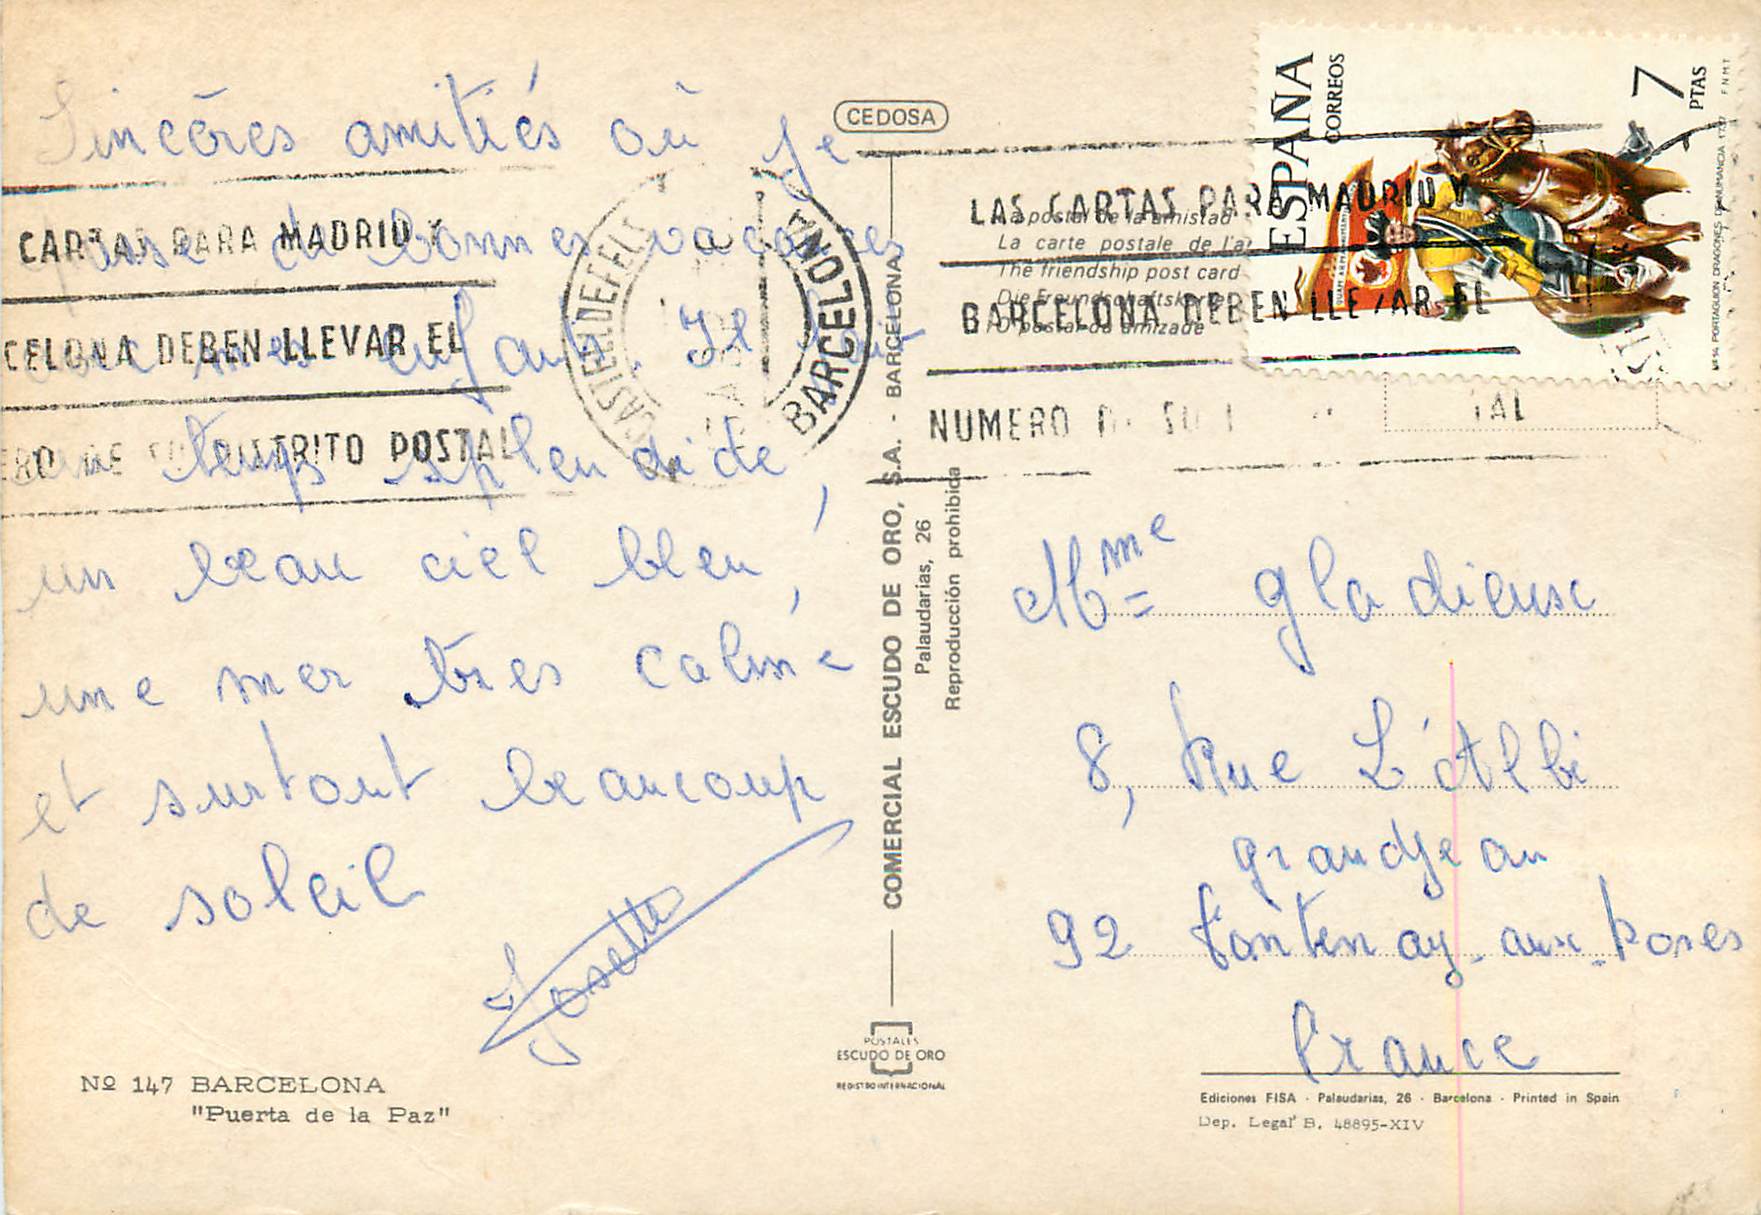 Sincères amitiés où je
passe de bonnes vacances
avec mes enfants. Il fait
un temps splendide,
un beau ciel bleu,
une mer très calme
et surtout beaucoup
de soleil
Josette
Nº 147 BARCELONA
"Puerta de la Paz"
CARTAS PARA MADRID Y
CELONA DEBEN LLEVAR EL
ERO DE SU DISTRITO POSTAL
CASTELLDEFELS
BARCELONA
CEDOSA
COMERCIAL ESCUDO DE ORO, S.A. - BARCELONA
Palaudarias, 26
Reproducción prohibida
POSTALES
ESCUDO DE ORO
REGISTRO INTERNACIONAL
La postal de la amistad
La carte postale de l'a
The friendship post card
Die Freundschaftskarte
O postal da amizade
LAS CARTAS PARA MADRID Y
BARCELONA DEBEN LLEVAR EL
NUMERO DE SU TAL
ESPAÑA
CORREOS
7
PTAS
F.N.M.T.
Nº 14 PORTAGUION DRAGONES DE NUMANCIA 1737
Mme Gladieux
8, Rue L'Albi
grandjean
92 Fontenay-aux-Roses
France
Ediciones FISA - Palaudarias, 26 - Barcelona - Printed in Spain
Dep. Legal B. 48895-XIV